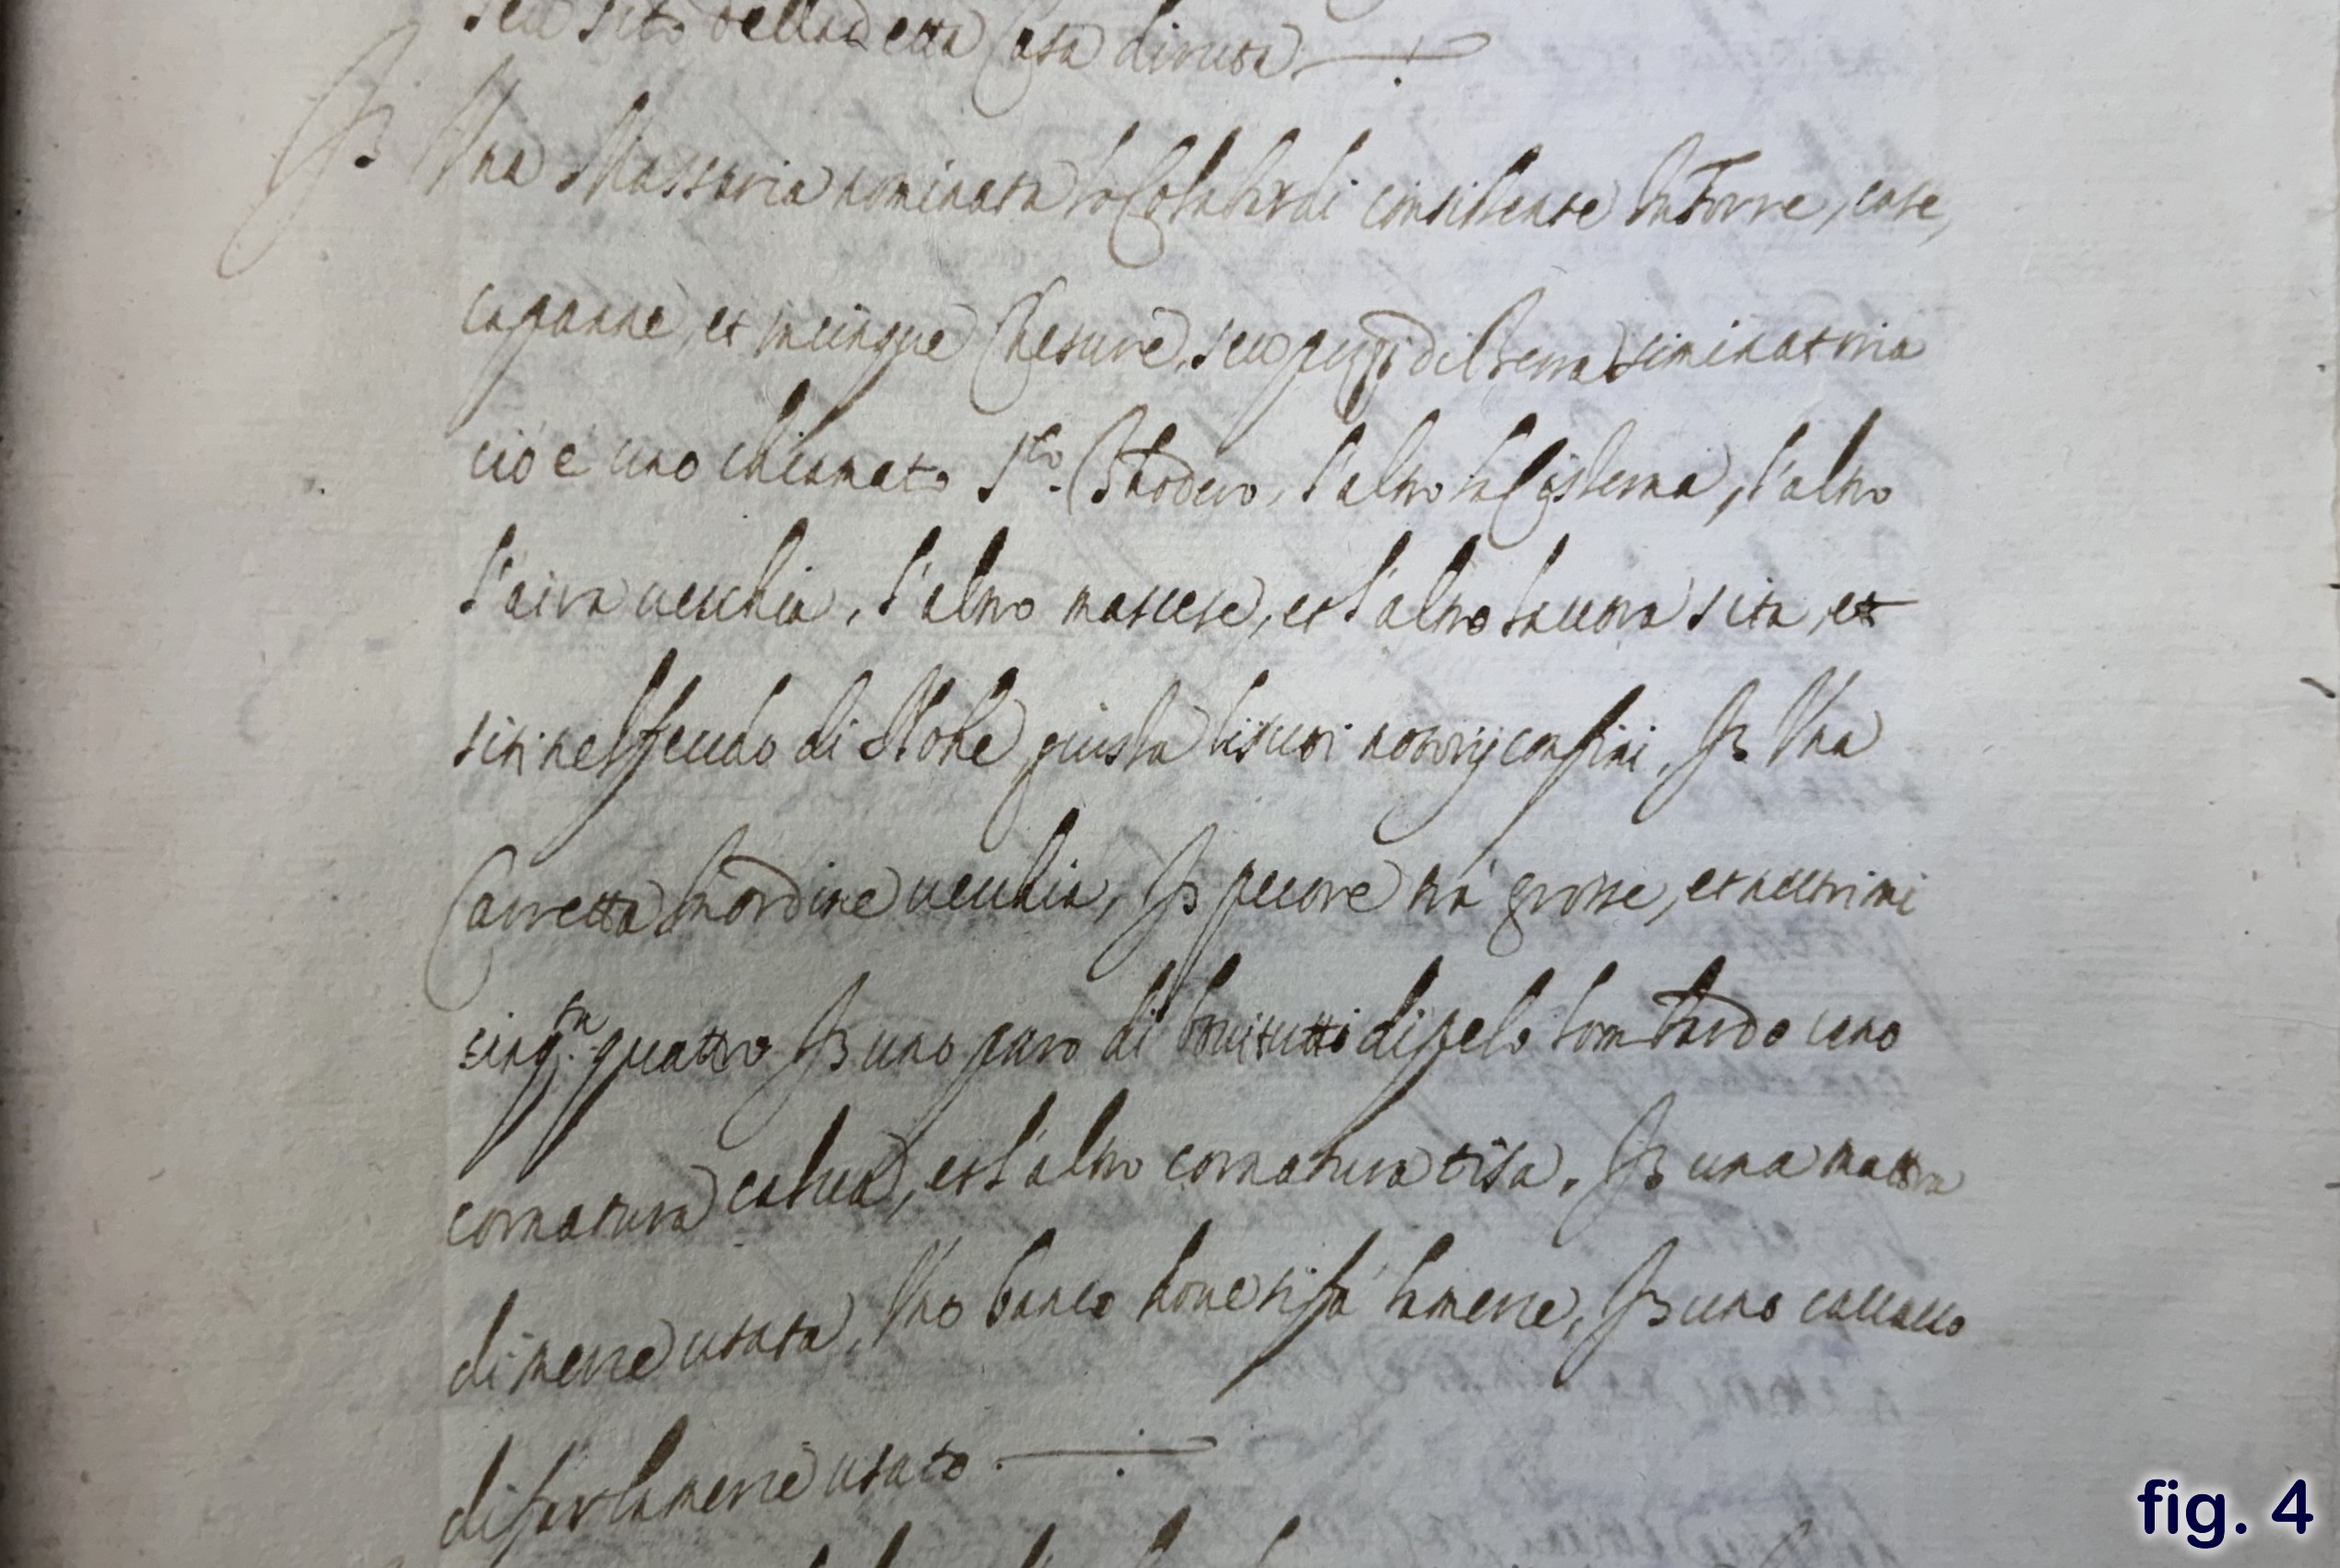 seu sito della detta Casa diruta
Una Massaria nominata lo Colabardi consistente in Torre, case,
capanne, et in cinque Chesure, seu pezzi di terra seminatoria
cio è uno chiamato S.to Thodero, l'altro la Cisterna, l'altro
l'aira vecchia, l'altro mascese, et l'altro sita, et
siti nel feudo di Nohe giusta li suoi notorij confini, It Una
Carretta in ordine vecchia, It pecore trà grosse, et
cinq.ta quattro It uno paro di bovi tutti di pelo lombardo uno
cornatura calua, et l'altro cornatura tisa. It una mattra
di mensie usata, Uno banco dove si fà
usato
fig. 4